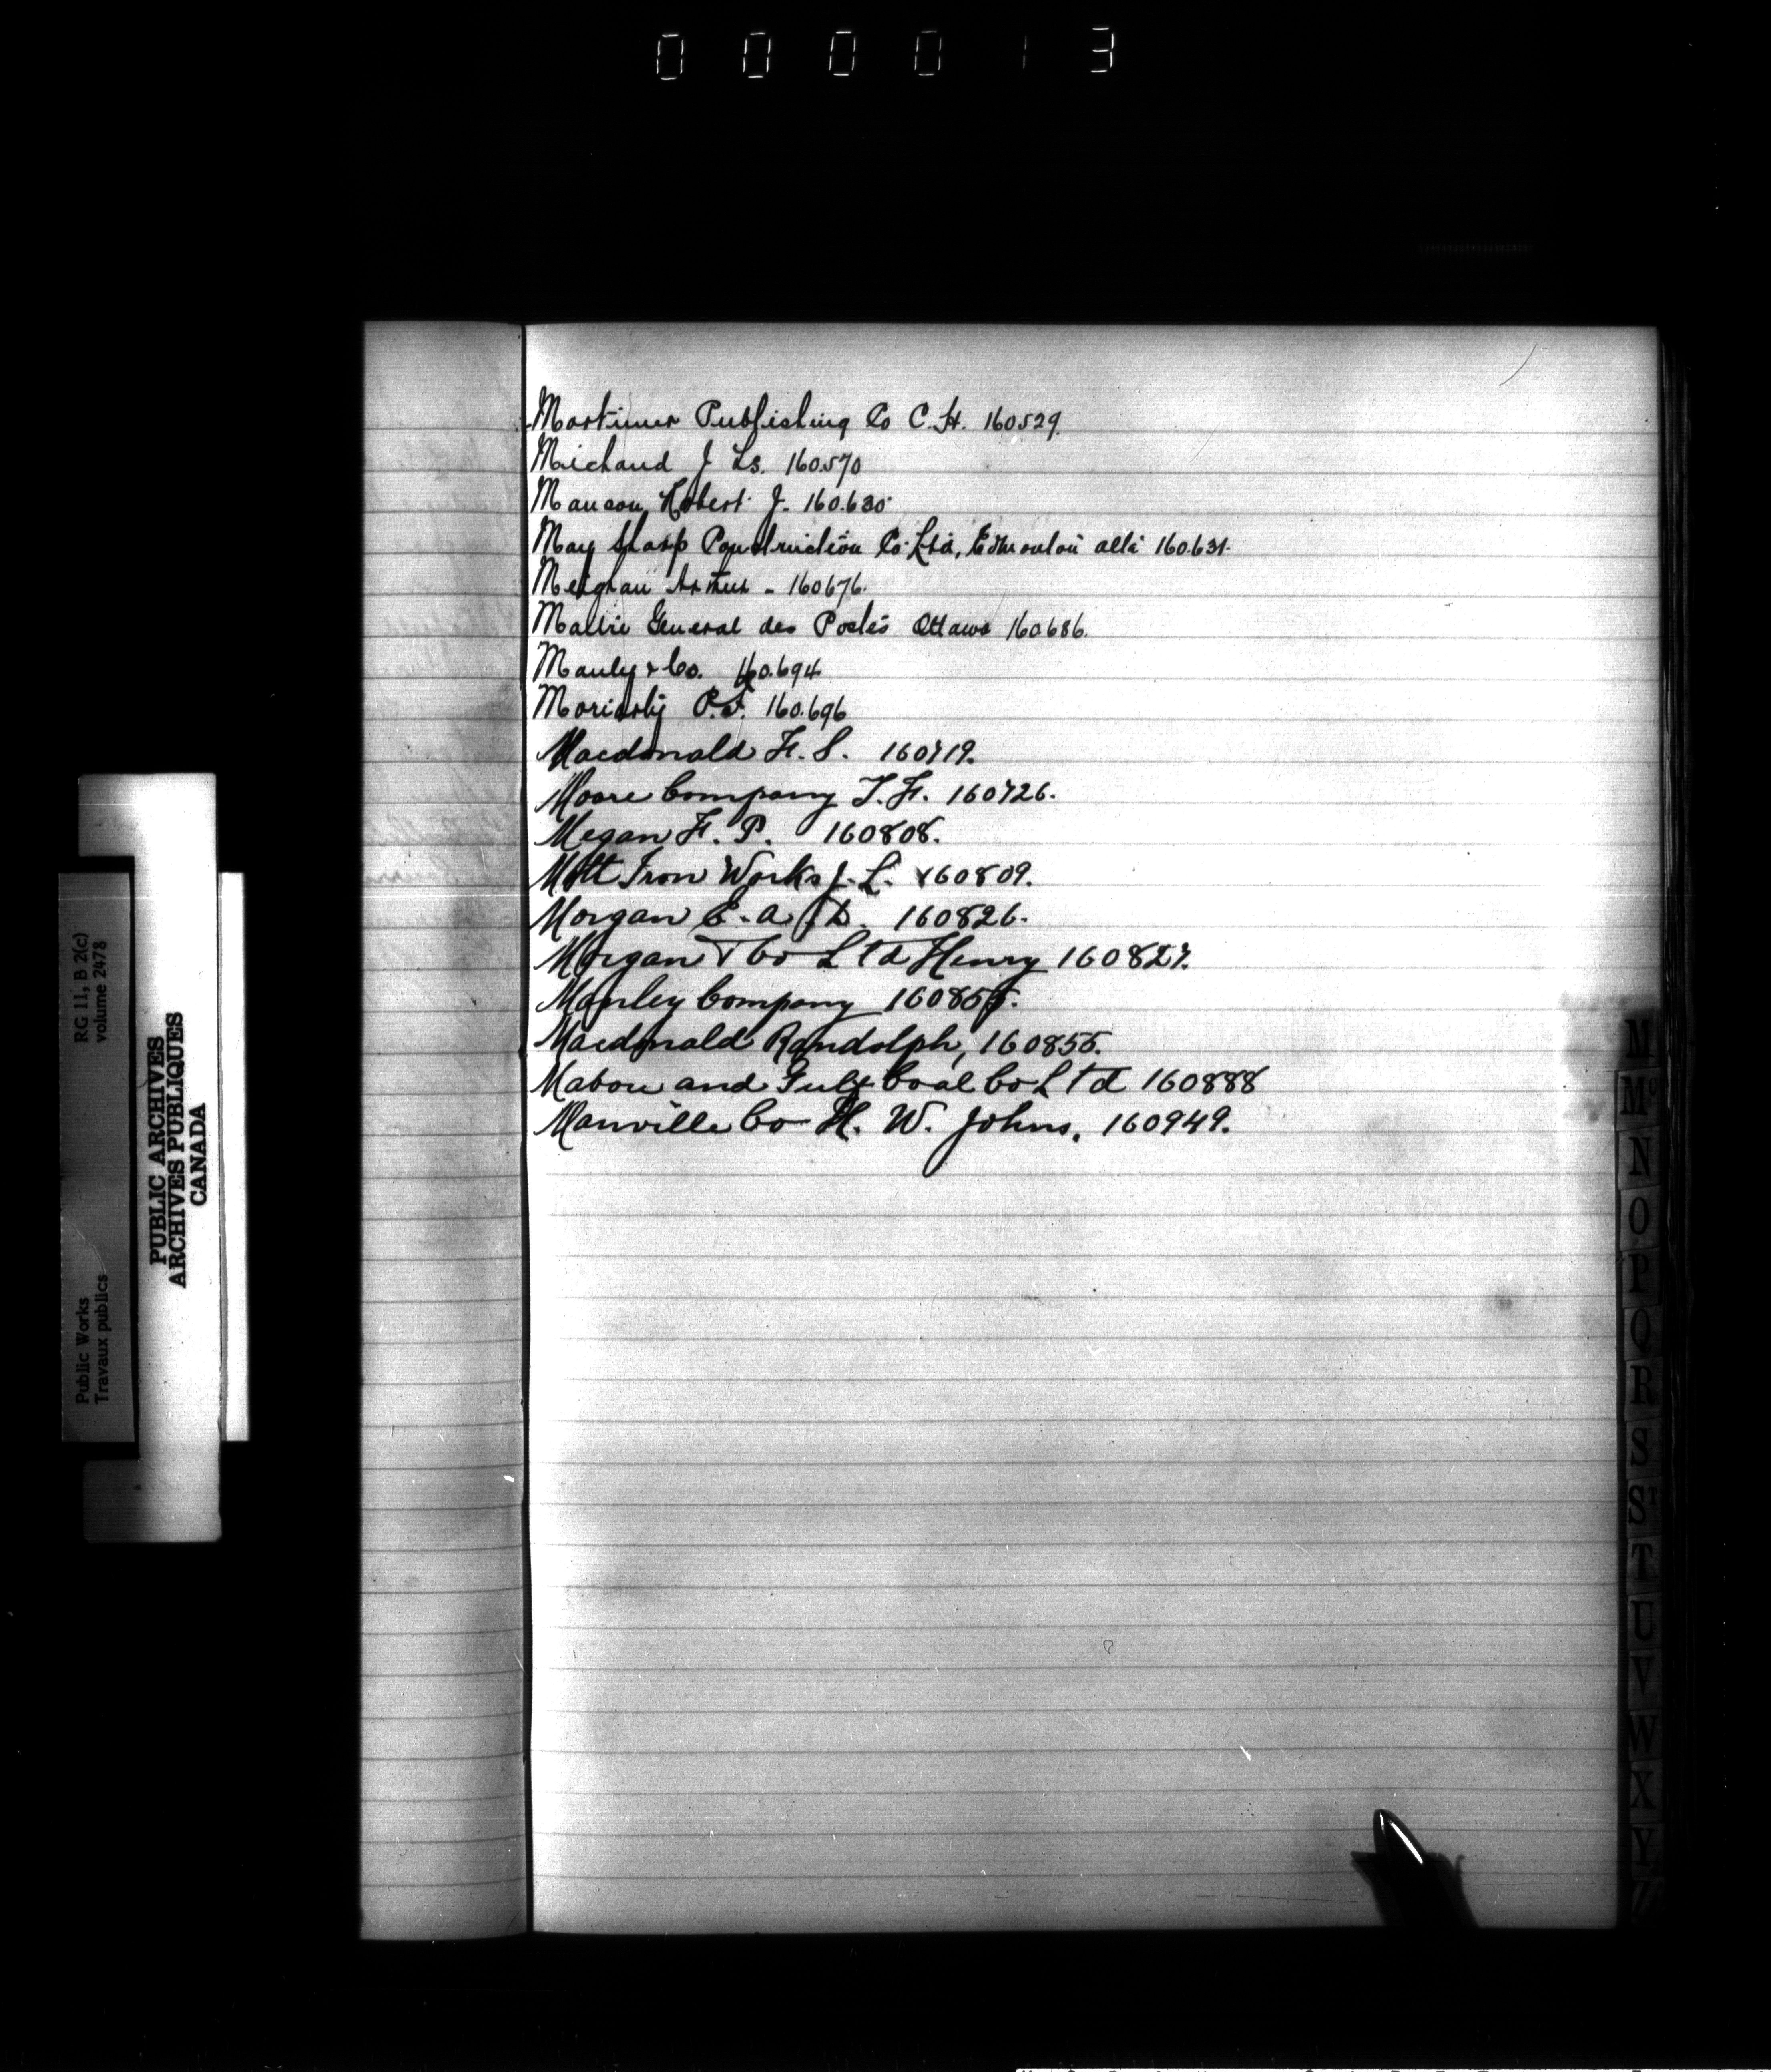 000013
Mortimer Publishing Co C. H. 160529.
Michaud J Ls. 160570
Manson, Robert J. 160.630
May Sharp Construction Co. Ltd, Edmonton alta 160.631.
Meighan Arthur - 160676.
Maitre General des Postes Ottawa 160686.
Manly & Co. 160.694
Moriarty P.S. 160.696
Macdonald H. S. 160719.
Moore Company T. F. 160726.
Megan F. P. 160808.
Mott Iron Works J. L. 160809.
Morgan E. A. D. 160826.
Morgan & Co Ltd Henry 160827.
Manley Company 160855.
Macdonald Randolph, 160856.
Mabou and Gulf Coal Co Ltd 160888
Manville Co H. W. Johns. 160949.
M
Mc
N
O
P
Q
R
S
ST
T
U
V
W
X
Y
Z
RG 11, B 2(c)
volume 2478
Public Works
Travaux publics
PUBLIC ARCHIVES
ARCHIVES PUBLIQUES
CANADA